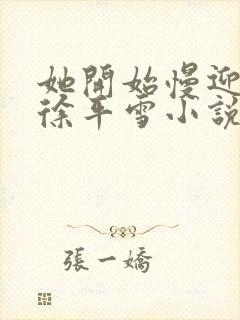 她開始慢迎
徐平雪小說
張一嬌